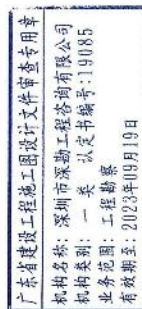 广东省建设工程施工图设计文件审查专用章
机构名称：深圳市深勘工程咨询有限公司
机构类别：一类 认定书编号：19085
业务范围：工程勘察
有效期至：2023年09月19日